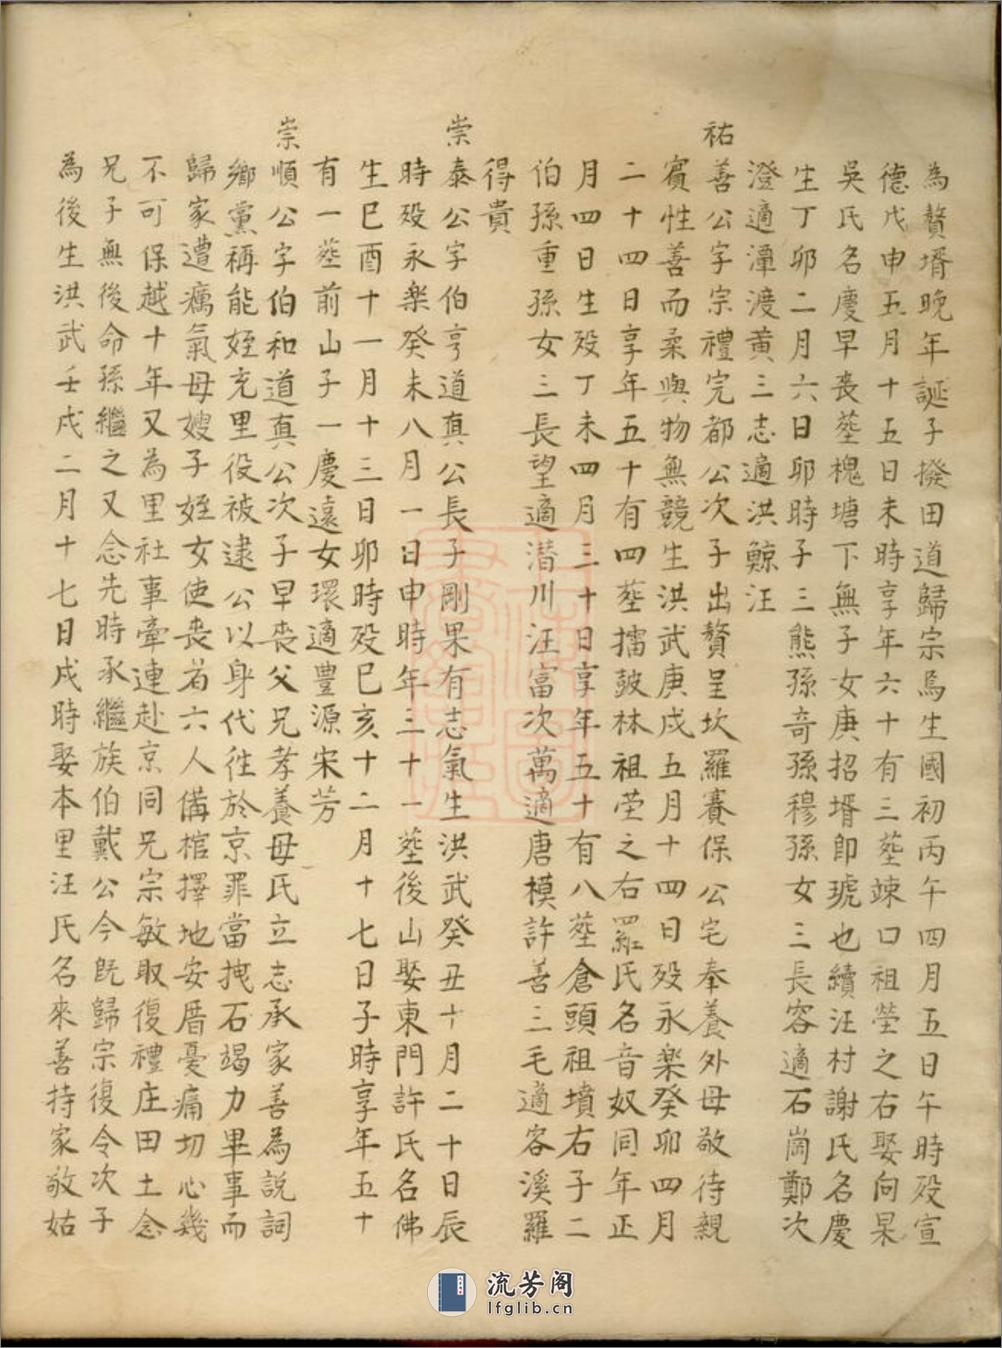 為贅壻晚年誕子撥田道歸宗焉生國初丙午四月五日午時殁宣
德戊申五月十五日未時享年六十有三塟竦口祖塋之右娶向杲
吳氏名慶早丧塟槐塘下無子女庚招壻即琥也續汪村謝氏名慶
生丁卯二月六日卯時子三熊孫奇孫穆孫女三長容適石崗鄭次
澄適潭渡黄三志適洪鯨汪
祐善公字宗禮完都公次子出贅呈坎羅賽保公宅奉養外母敬待親
賓性善而柔與物無競生洪武庚戌五月十四日殁永楽癸卯四月
二十四日享年五十有四塟擂鼓林祖塋之右羅氏名音奴同年正
月四日生殁丁未四月三十日享年五十有八塟倉頭祖墳右子二
伯孫重孫女三長望適潛川汪富次萬適唐模許善三毛適容溪羅
得貴
崇泰公字伯亨道真公長子剛果有志氣生洪武癸丑十月二十日辰
時殁永楽癸未八月一日申時年三十一塟後山娶東門許氏名佛
生巳酉十一月十三日卯時殁巳亥十二月十七日子時享年五十
有一塟前山子一慶遠女環適豊源宋芳
崇順公字伯和道真公次子早丧父兄孝養母氏立志承家善為説詞
鄉黨稱能姪充里役被逮公以身代徃於京罪當拽石竭力畢事而
歸家遭癘氣母嫂子姪女使丧者六人備棺擇地安厝憂痛切心幾
不可保越十年又為里社事牽連赴京同兄宗敏取復禮庄田土念
兄子無後命孫繼之又念先時承繼族伯戴公今既歸宗復令次子
為後生洪武壬戌二月十七日戌時娶本里汪氏名來善持家敬姑
流芳阁
lfglib.cn